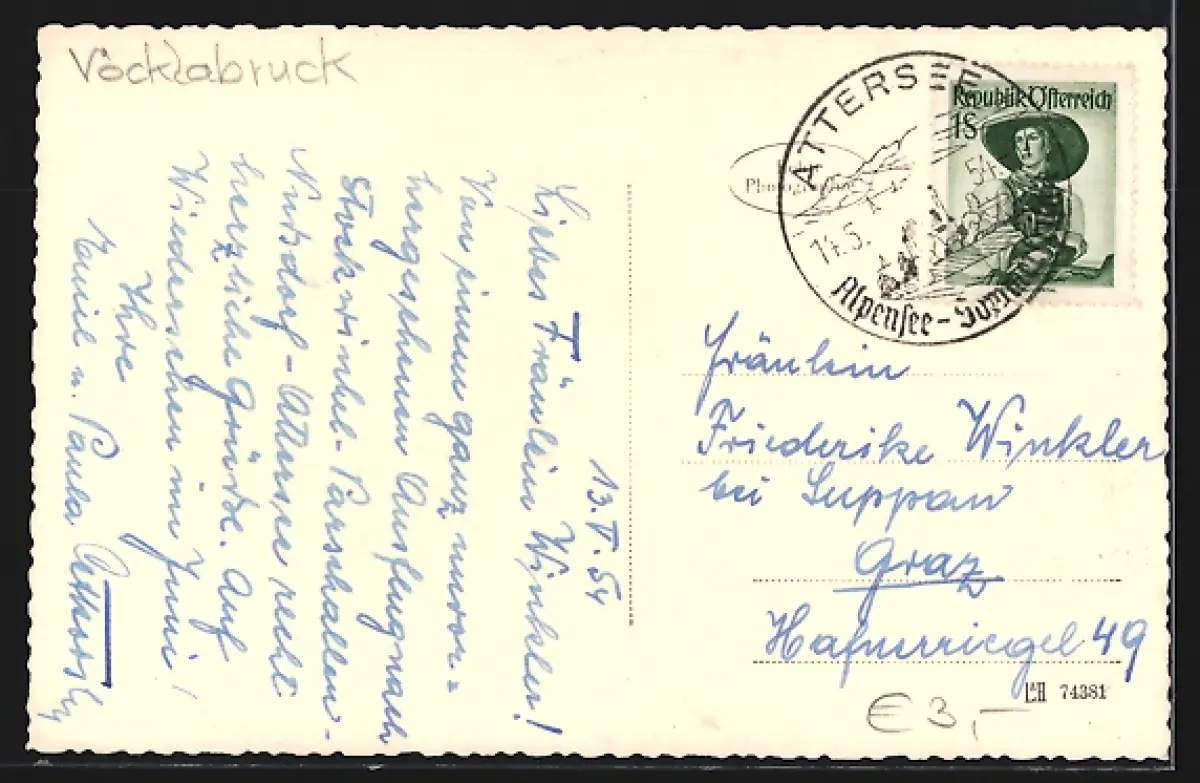 Vöcklabruck
13. V. 54
Liebes Fräulein Winkler!
Von einem ganz unvor=
hergesehenen Ausflug nach
Stockwinkel - Parschallen -
Nussdorf - Attersee recht
herzliche Grüsse. Auf
Wiedersehen im Juni!
Ihre
Emil u. Paula
ATTERSEE
14.5. 54.
Alpensee-
Republik Österreich
1S
Fräulein
Friederike Winkler
bei Suppan
Graz
Hafnerriegel 49
74381
€ 3,-